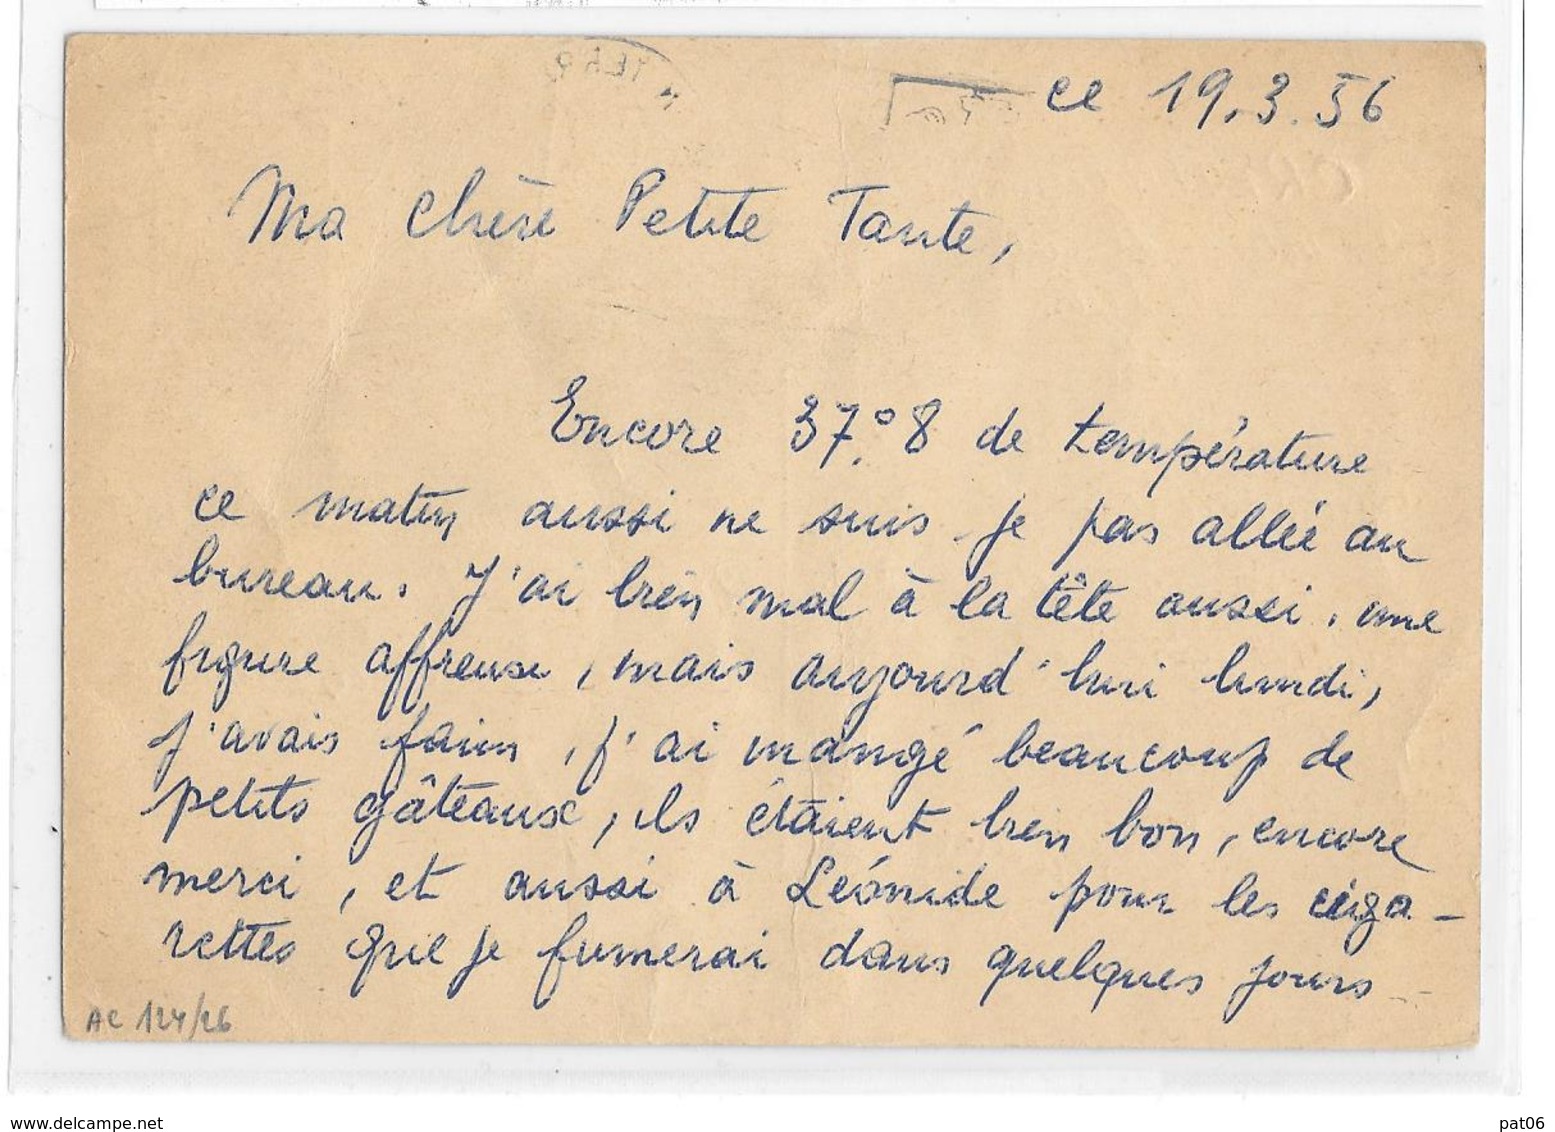 ce 19.3.56
Ma Chère Petite Tante,
Encore 37°.8 de température
ce matin aussi ne suis-je pas allée au
bureau. J'ai bien mal à la tête aussi, une
figure affreuse, mais aujourd'hui lundi,
j'avais faim, j'ai mangé beaucoup de
petits gâteaux, ils étaient bien bon, encore
merci, et aussi à Léonide pour les ciga-
rettes que je fumerai dans quelques jours
AC 124/26
www.delcampe.net
pat06